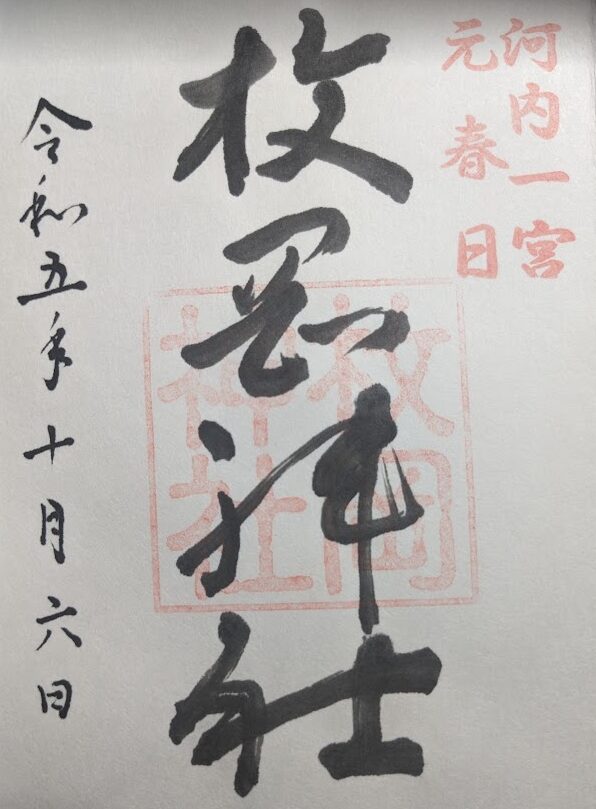 河内一宮
元春日
枚岡神社
枚岡神社
令和五年十月六日